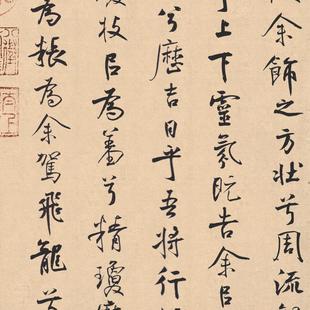 余飾之方壯兮周流
上下靈氛既告余㠯
兮歷吉日乎吾將行
枝㠯為羞兮精瓊
為粻為余駕飛龍兮